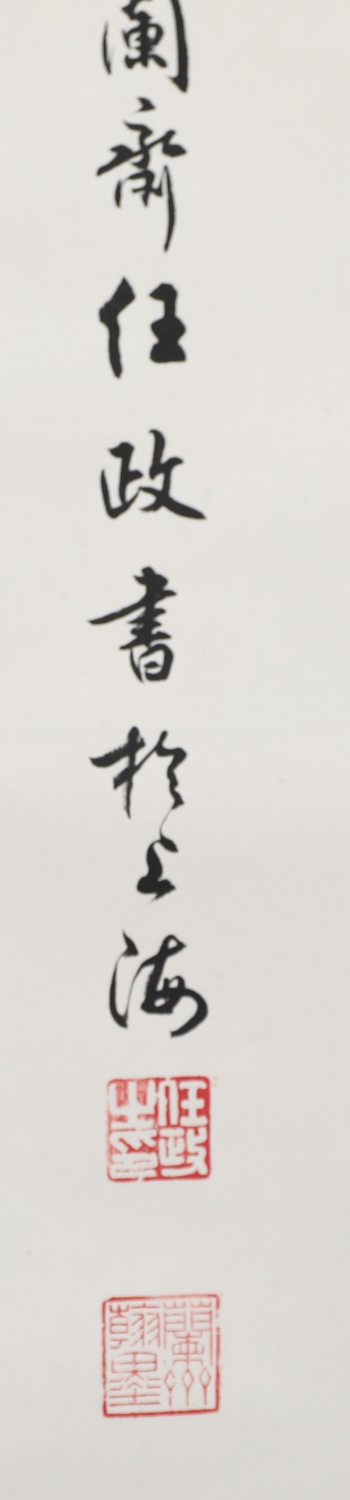 蘭齋任政書於上海
任政之印
蘭州翰墨